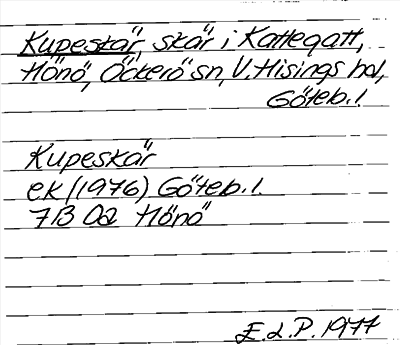 Kupeskär, skär i Kattegatt,
Hönö, Öckerö sn, V. Hisings hd,
Göteb. l.
Kupeskär
ek (1976) Göteb. l.
7B 0a Hönö
E.L.P. 1977